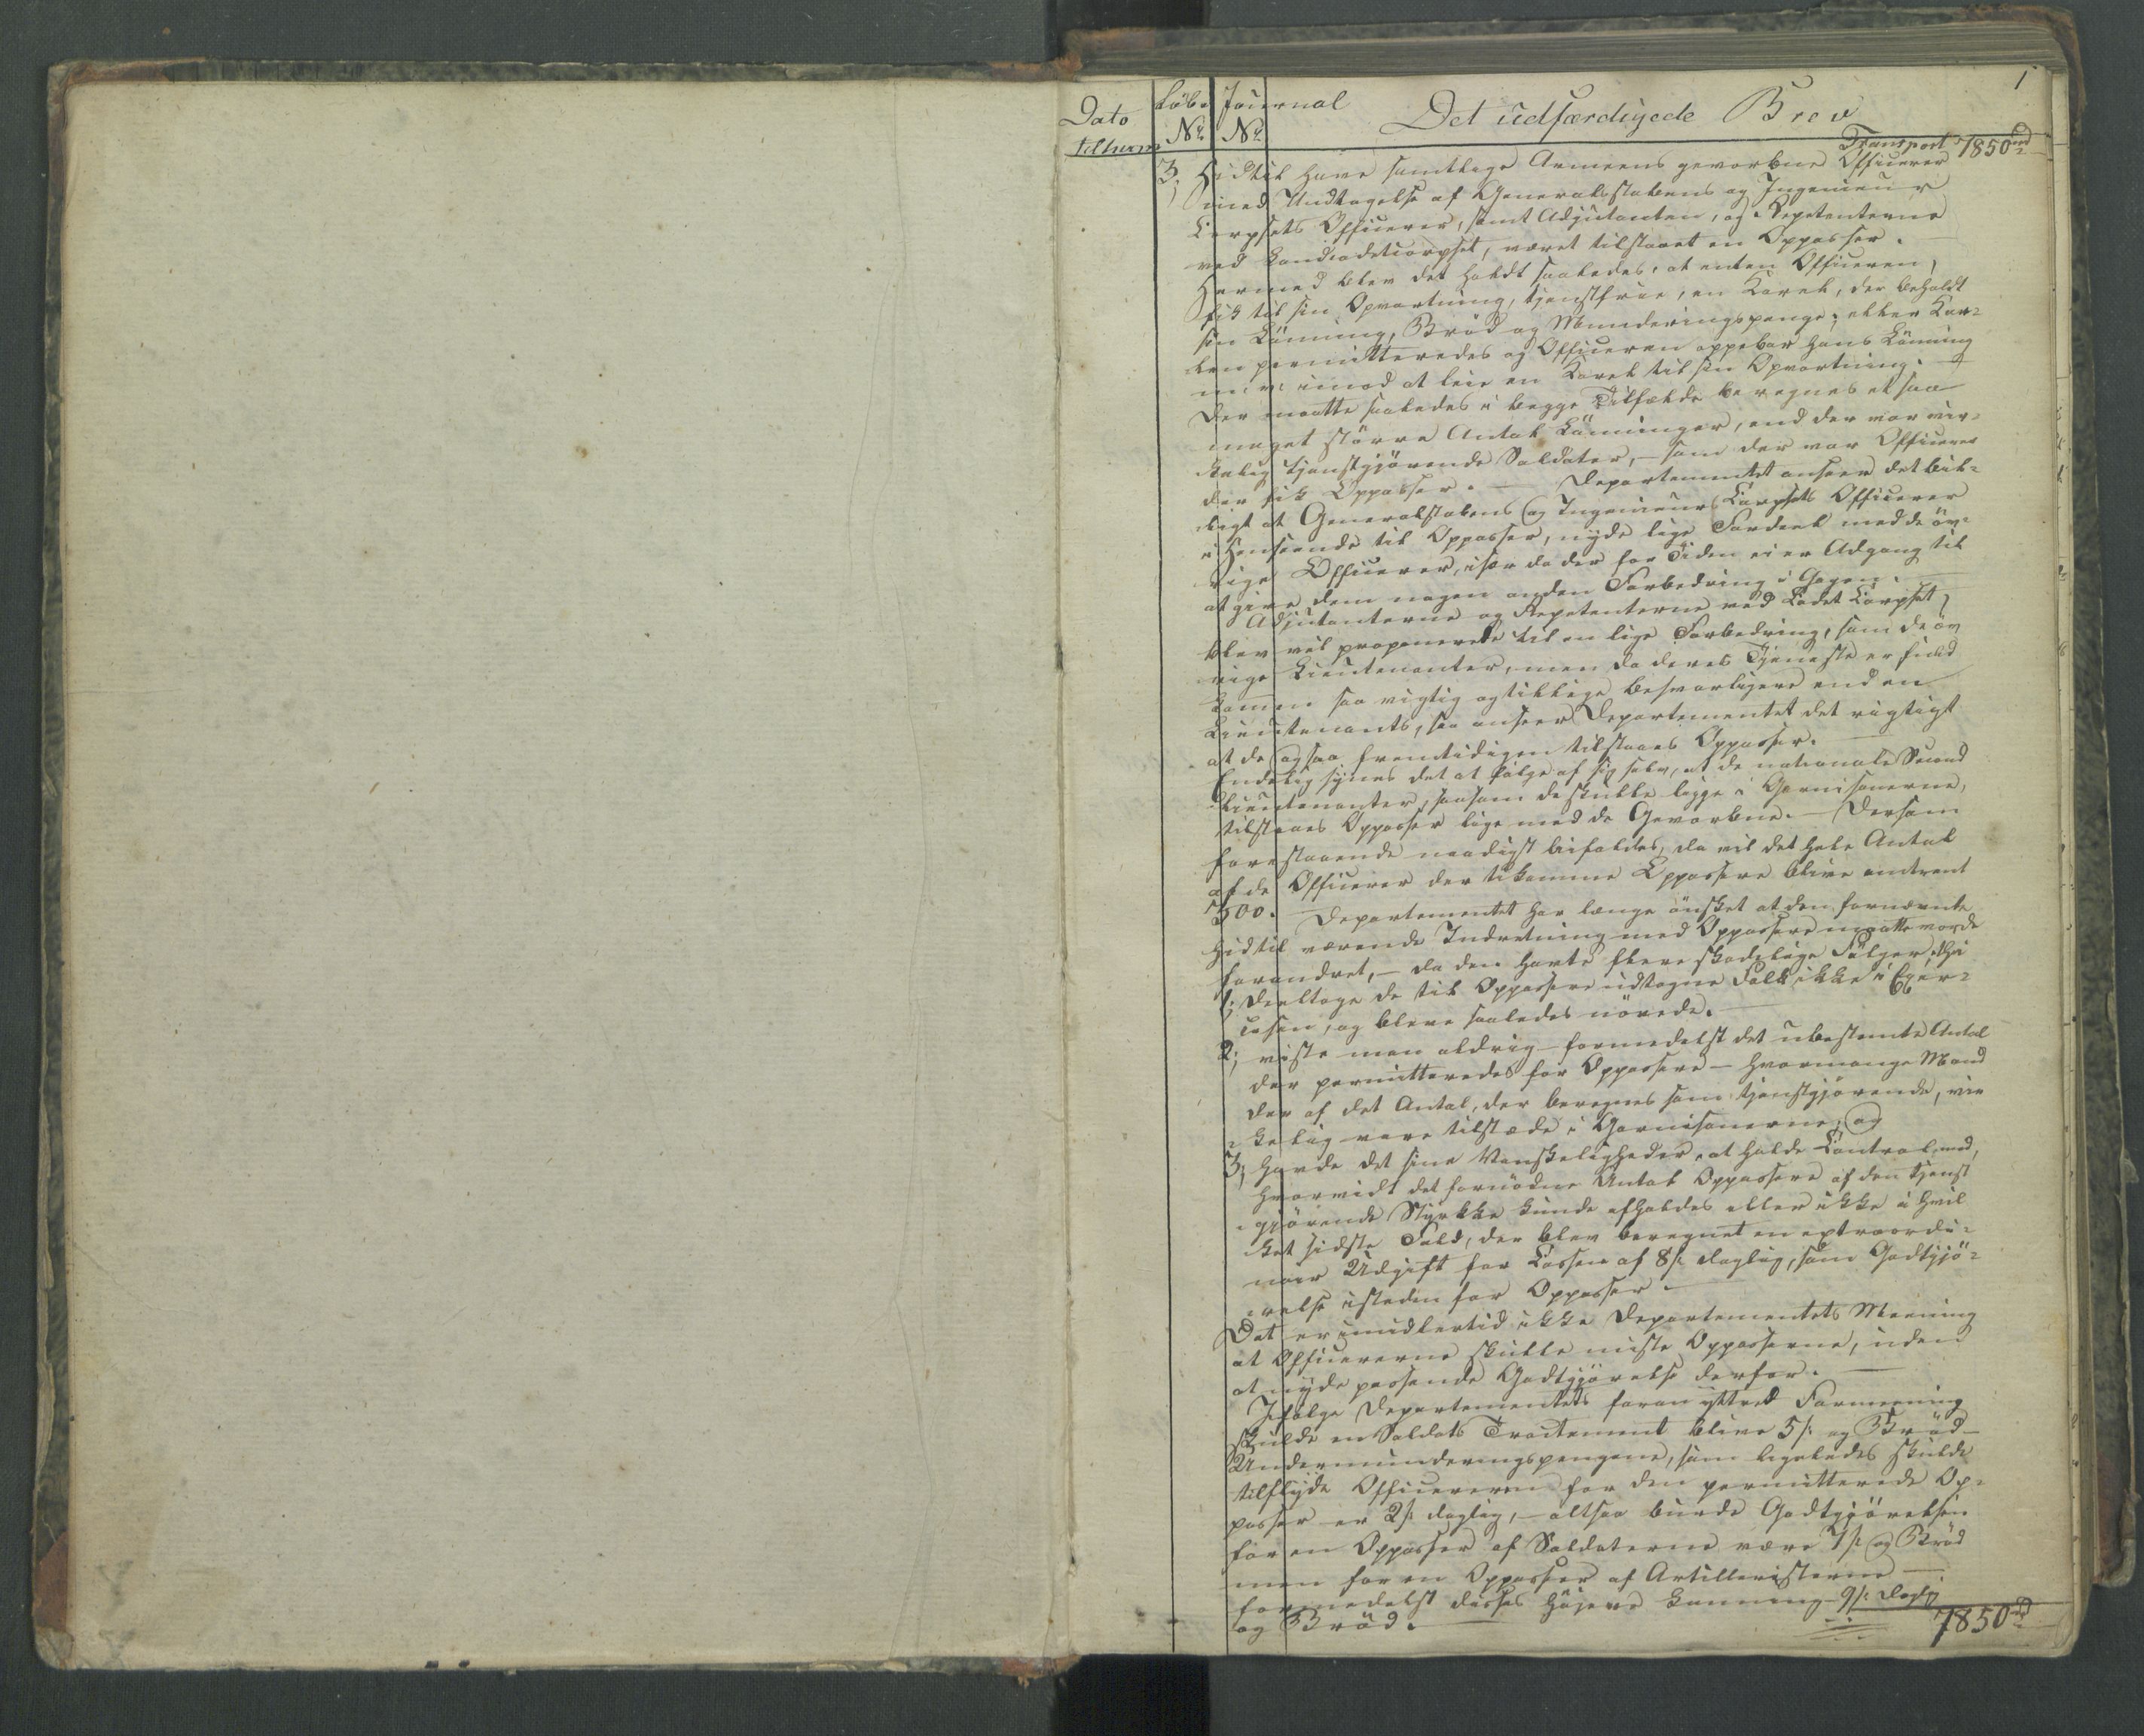 1
Dato
til hvem
Löbe
No
Journal
No
Det udfærdigede Brev
Transport 7850 rd
3, Hidtil have samtlige Armeens gevorbne Officerer
med Undtagelse af Generalstabens og Ingenieur
Corpsets Officerer, samt Adjutanten, og Repetenterne
ved Landcadetcorpset, været tilstaaet en Oppasser.
Hermed blev det holdt saaledes, at enten Officeren,
fik til sin Opvartning, tjenstfrie, en Karl, der beholdt
sin Lönning, Bröd og Munderingspenge; eller Kar-
len permitteredes og Officeren oppebar hans Lönning
m: v: imod at leie en Karl til sin Opvartning.
Der maatte saaledes i begge Tilfælde beregnes et saa
meget större Antal Lönninger, end der var vir-
kelig tjenstgjörende Soldater, – som der var Officerer
der fik Oppasser. – Departementet anseer det bil-
ligt at Generalstabens og Ingenieur Corpsets Officerer
i Henseende til Oppasser, nyde lige Fordeel med de öv-
rige Officerer, især da der for Tiden ei er Adgang til
at give dem nogen anden Forbedring i Gagen.
Adjutanterne og Repetenterne ved Cadet Corpset,
blev vel proponerede til en lige Forbedring, som de öv
rige Lieutenanter, men da deres Tjeneste er fuld
kommen saa vigtig og tillige besværligere end en
Lieutenants, saa anseer Departementet det rigtigst
at de ogsaa fremtidigen tilstaaes Oppasser.
Endelig synes det at fölge af sig selv, at de nationale Second
Lieutenanter, saasom de skulle ligge i Garnisonerne,
tilstaaes Oppasser lige med de Gevorbne. – Dersom
forestaaende naadigst bifaldes, da vil det hele Antal
af de Officerer der tilkomme Oppassere blive omtrent
500. Departementet har længe önsket at den fornævnte
hidtil værende Indretning med Oppassere maatte vorde
forandret, – da den havde flere skadelige Fölger, thi
1, deeltoge de til Oppassere udtagne Folk ikke i Exer-
cisen, og bleve saaledes uövede.
2, viste man aldrig – formedelst det ubestemte Antal
der permitteredes for Oppassere – hvormange Mand
der af det Antal, der beregnes som tjenstgjörende, vir
kelig vare tilstæde i Garnisonerne; og
3, havde det sine Vanskeligheder, at holde Control med,
hvorvidt det fornödne Antal Oppassere af den tjenst
gjörende Styrkke kunde afholdes eller ikke i hvil
ket sidste Fald, der blev beregnet en extraordi-
nair Udgift for Cassen af 8 s: daglig, som Godtgjö-
relse isteden for Oppasser.
Det er imidlertid ikke Departementets Meening
at Officererne skulle miste Oppasserne, uden
at nyde passende Godtgjörelse derfor.
Ifölge Departementets foran yttred Formeening
skulde en Soldats Tractement blive 5 s: og Bröd –
Undermunderingspengene, som ligeledes skulde
tilflyde Officereren for den permitterede Op-
passer er 2 s: daglig, – altsaa burde Godtgjörelsen
for en Oppasser af Soldaterne være 7 s: og Bröd
men for en Oppasser af Artilleristerne –
formedelst disses höjere Lönning – 9 s: daglig
og Bröd.
7850 rd